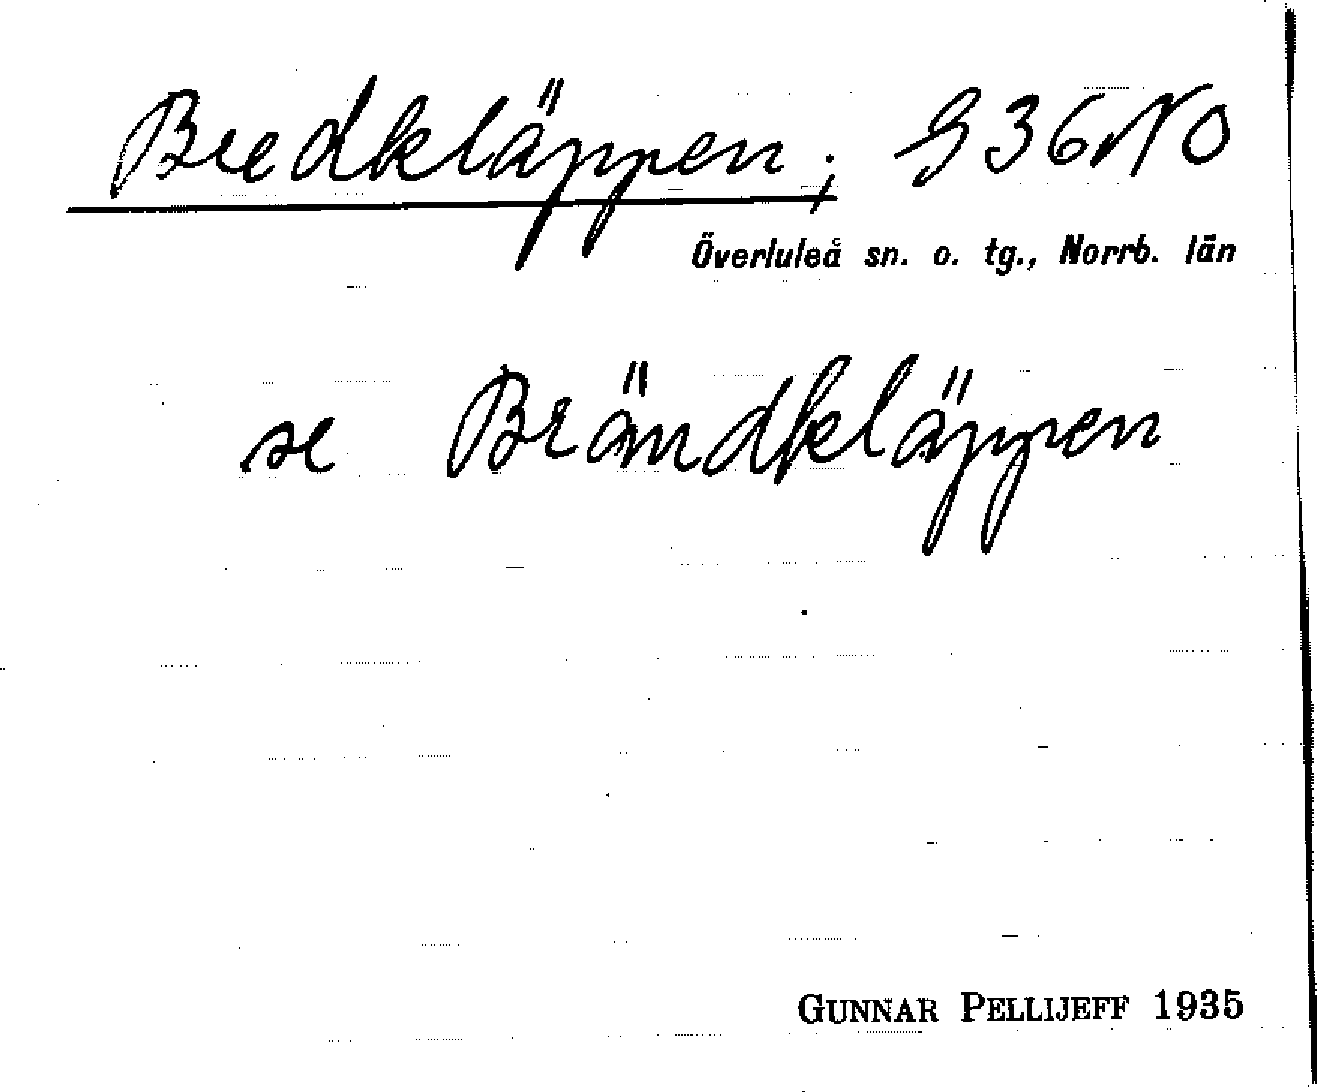 Bredkläppen; G 36 NO
Överluleå sn. o. tg., Norrb. län
se Brändkläppen
GUNNAR PELLIJEFF 1935